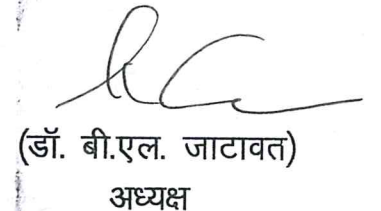 (डॉ. बी.एल. जाटावत)
अध्यक्ष